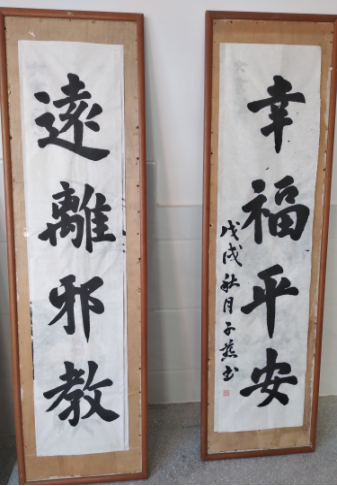 遠離邪教
幸福平安
戊戌秋月子燕书